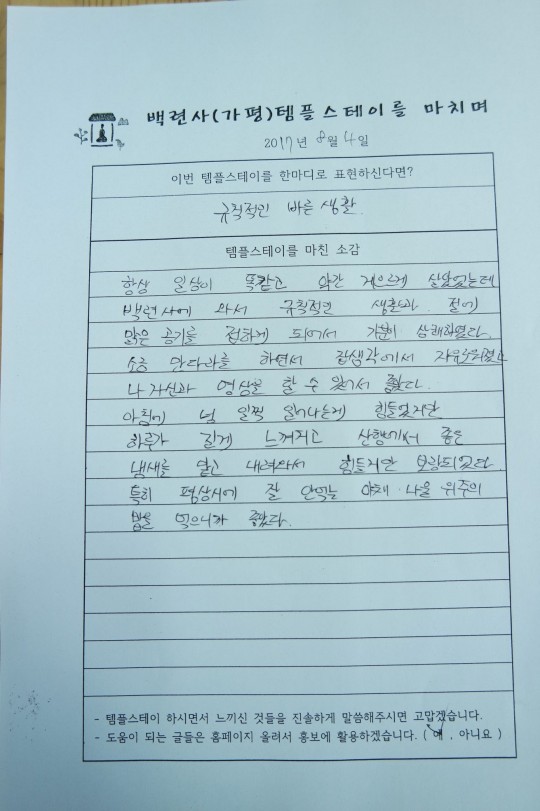 백련사(가평)템플스테이를 마치며
2017년 8월 4일
이번 템플스테이를 한마디로 표현하신다면?
규칙적인 바른 생활.
템플스테이를 마친 소감
항상 일상이 똑같고 약간 게으르게 살았었는데
백련사에 와서 규칙적인 생활과 절에
맑은 공기를 접하게 되어서 기분이 상쾌하였다.
소금 만다라를 하면서 잡생각에서 자유로워졌고
나 자신과 명상을 할 수 있어서 좋았다.
아침에 넘 일찍 일어나는게 힘들었지만
하루가 길게 느껴지고 산행에서 좋은
냄새를 맡고 내려와서 힘들지만 보람되었다.
특히 평상시에 잘 안먹는 야채·나물 위주의
밥을 먹으니까 좋았다.
- 템플스테이 하시면서 느끼신 것들을 진솔하게 말씀해주시면 고맙겠습니다.
- 도움이 되는 글들은 홈페이지 올려서 홍보에 활용하겠습니다. ( 예 , 아니요 )